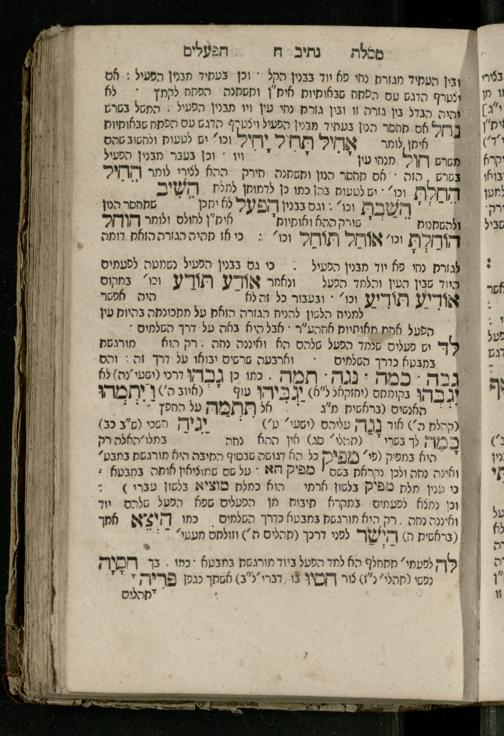 מכלת נתיב ח הפעלים
ובין העתיד מגזרת נחי פא יוד בבנין הקל ׳ וכן בעתיד מבנין הפעיל : אם
ולטרף הדגש עם הפתח שבאותיות אית״ן ותשתנה הפתח לקמץ ׳ לא
יהיה הבדל בין גזרה זו ובין גזרת נחי עין ויו מבנין הפעיל . המשל בשרש
נחל אם תחסר הנון בעתיד מבנין הפעיל ולטרף הדגש עם הפתח שבאותיות
איתן לומר אָחִיל תָּחִיל יָחִיל וכו׳ יש לטעות ולחשוב שהם
משרש חוּל מנחי עין ויו ׳ וכן בעבר מבנין הפעיל
בשרש הזה ׳ אם תחסר הנון ותשתנה חירק ההא לצירי לומר הֵחִיל
הֵחַלְתָּ וכו׳ ׳ יש לטעות בהן כמו כן לדמותן למלת הֵשִׁיב
הֵשַׁבְתָּ וכו׳ : וגם בבנין הָפְעַל לא יתכן שתחסר הנון
ולהשתנות שירק ההא ואותיות אית״ן לחולם ולומר הוחל
הוֹחַלְתָּ וכו׳ אוֹחַל תּוֹחַל וכו׳ : כי אז תהיה הגזרה הזאת דומה
לגזרת נחי פא יוד מבנין הפעיל : כי גם בבנין הפעיל נשמטה לפעמים
היוד שבין העין והלמד הפעל ונאמר אודע תודע וכו׳ במקום
אודיע תודיע וכו׳ ׳ ובעבור כל זה לא היה אפשר
למנחי הלשון להניח הגזרה הזאת על מתכונתה בהיות עין
הפעל אחת מאותיות אהחע״ר ׳ אבל היא באה על דרך השלמים ׳
לך יש פעלים שלמד הפעל שלהם הא ואיננה נחה . רק הוא מורגשת
במבטא כדרך השלמים ׳ וארבעה שרשים יבואו על דרך זה : והם
גבה ׳ כמה ׳ נגה ׳ תמה . כמו כן גבהו דרכי (ישעי׳ נה) לא
יגבהו בקומתם (יחזקאל ל״א) יגביהו עוף (איוב ה׳) ויתמהו
האנשים (בראשית מ״ג אל תתמה על החפץ
(קהלת ה׳) אור נגה עליהם (ישעי׳ ט׳) יגיה חשכי (ש״ב כב)
כמה לך בשרי (תהלי׳ סג) אין ההא נחה במלו׳ האלה רק
היא במפיק (פי׳ מפיק כל הא דגושה שבסוף התיבה היא מורגשת במבט׳
ואינה נחה ולכן נקראת בשם מפיק הא ׳ על שם שמוציאין אותה במבטא ׳
כי ענין מלת מפיק בלשון ארמי הוא כמלת מוציא בלשון עברי ) :
וכן נמלא לפעמים במקרא תיבות מן הפעלים שפא הפעל שלהם יוד
ואיננה נחה . רק היא מורגשת במבטא כדרך השלמים כמו היצא אתך
(בראשית ח) הישר לפני דרכך (תהלים ה׳)
לה לפעמי׳ תתחלף הא למד הפעל ביוד מורגשת במבטא ׳ כמו . בך חסיה
נפשי (תהלי׳ נ״ז) צור חסיו בו אשתך כגפן פריה
תהלים